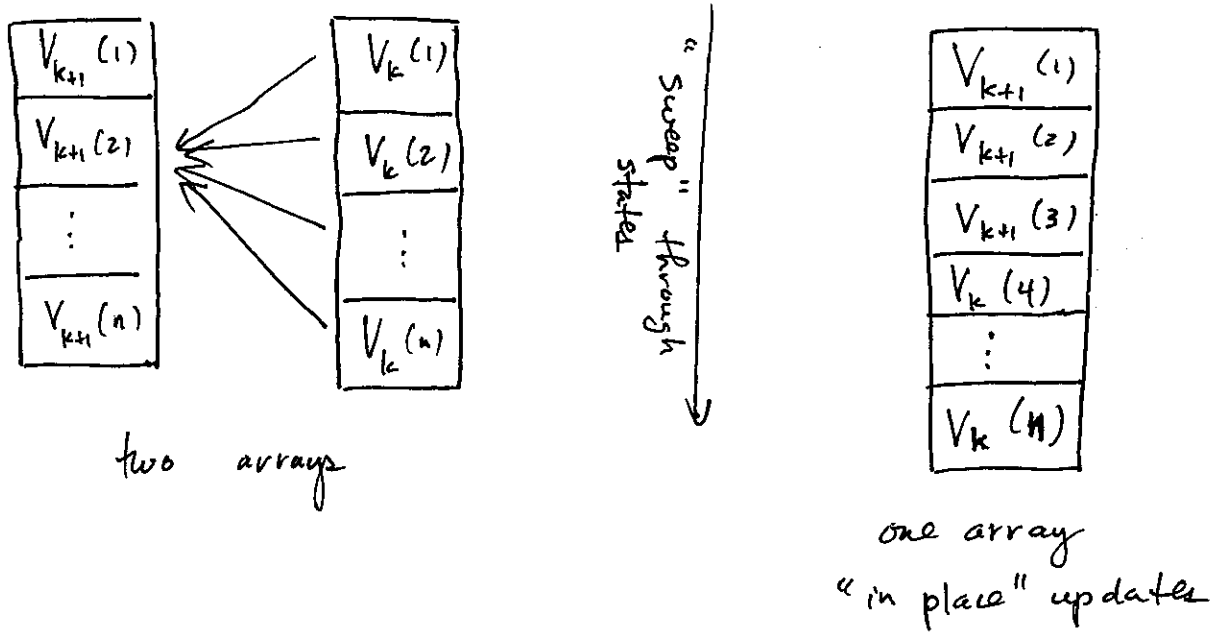 V_{k+1} (1)
V_{k+1} (2)
⋮
V_{k+1} (n)
V_k (1)
V_k (2)
⋮
V_k (n)
two arrays
"Sweep" through
states
V_{k+1} (1)
V_{k+1} (2)
V_{k+1} (3)
V_k (4)
⋮
V_k (n)
one array
"in place" updates